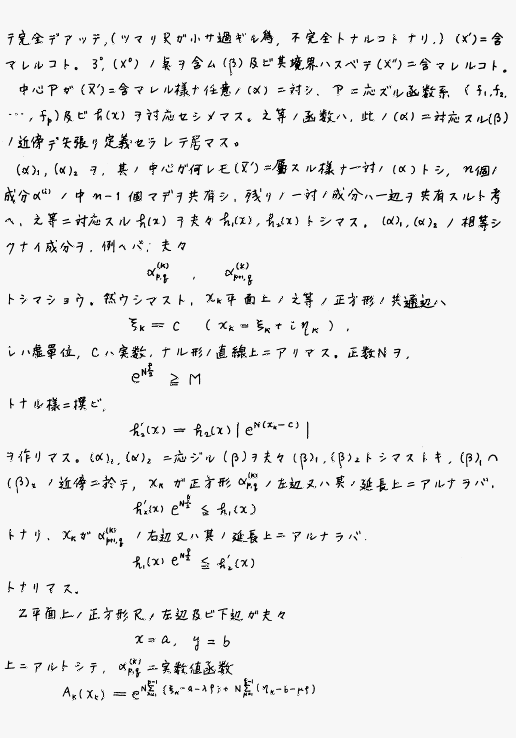 テ完全デアッテ,(ツマリRガ小サ過ギル為, 不完全トナルコトナリ,) (X')ニ含
マレルコト。3°, (X°) ノ点ヲ含ム (β) 及ビ其境界ハスベテ (X'') ニ含マレルコト。
中心Pガ (X')ニ含マレル様ナ任意ノ (α) ニ対シ, Pニ応ズル函数系 (f₁, f₂,
…, fₚ) 及ビ h(x) ヲ対応セシメマス。之等ノ函数ハ, 此ノ (α) ニ対応スル (β)
ノ近傍デ矢張リ定義セラレテ居マス。
(α)₁, (α)₂ ヲ, 其ノ中心ガ何レモ (X')ニ属スル様ナ一対ノ (α) トシ, n個ノ
成分 α⁽ⁱ⁾ ノ中 n-1 個マデヲ共有シ, 残リノ一対ノ成分ハ一辺ヲ共有スルト考
ヘ, 之等ニ対応スル h(x) ヲ夫々 h₁(x), h₂(x) トシマス。(α)₁, (α)₂ ノ相等シ
クナイ成分ヲ, 例ヘバ, 夫々
α_{p,q}^{(k)} , α_{p+1,q}^{(k)}
トシマショウ。然ウシマスト, x_k 平面上ノ之等ノ正方形ノ共通辺ハ
ξ_k = C ( x_k = ξ_k + i η_k ) ,
i ハ虚単位, C ハ実数, ナル形ノ直線上ニアリマス。正数Nヲ,
e^{N ρ/2} ≧ M
トナル様ニ撰ビ,
h₂'(x) = h₂(x) | e^{N(x_k - c)} |
ヲ作リマス。(α)₁, (α)₂ ニ応ジル (β) ヲ夫々 (β)₁, (β)₂ トシマストキ, (β)₁ ∩
(β)₂ ノ近傍ニ於テ, x_k ガ正方形 α_{p,q}^{(k)} ノ左辺又ハ其ノ延長上ニアルナラバ,
h₂'(x) e^{N ρ/2} ≦ h₁(x)
トナリ, x_k ガ α_{p+1,q}^{(k)} ノ右辺又ハ其ノ延長上ニアルナラバ,
h₁(x) e^{N ρ/2} ≦ h₂'(x)
トナリマス。
Z平面上ノ正方形R, ノ左辺及ビ下辺ガ夫々
x = a, y = b
上ニアルトシテ, α_{p,q}^{(k)} ニ実数値函数
A_k(x_k) = e^{N Σ_{λ=1}^{p-1} (ξ_k - a - λρ) + N Σ_{μ=1}^{q-1} (η_k - b - μρ)}